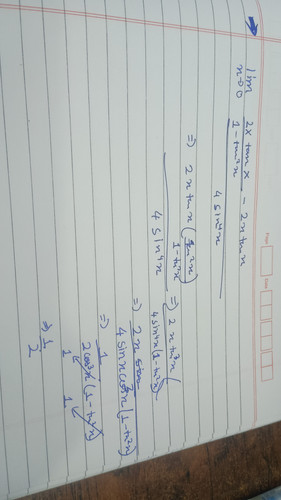 Page
Date
lim x→0 (2x tan x / (1 - tan²x) - 2x tan x) / 4 sin⁴x
⇒ 2x tan x (tan²x / (1 - tan²x)) / 4 sin⁴x ⇒ 2x tan³x / 4 sin⁴x (1 - tan²x)
⇒ 2x / 4 sin x cos³x (1 - tan²x)
⇒ 1 / 2 cos³x (1 - tan²x)
1 1
⇒ 1/2